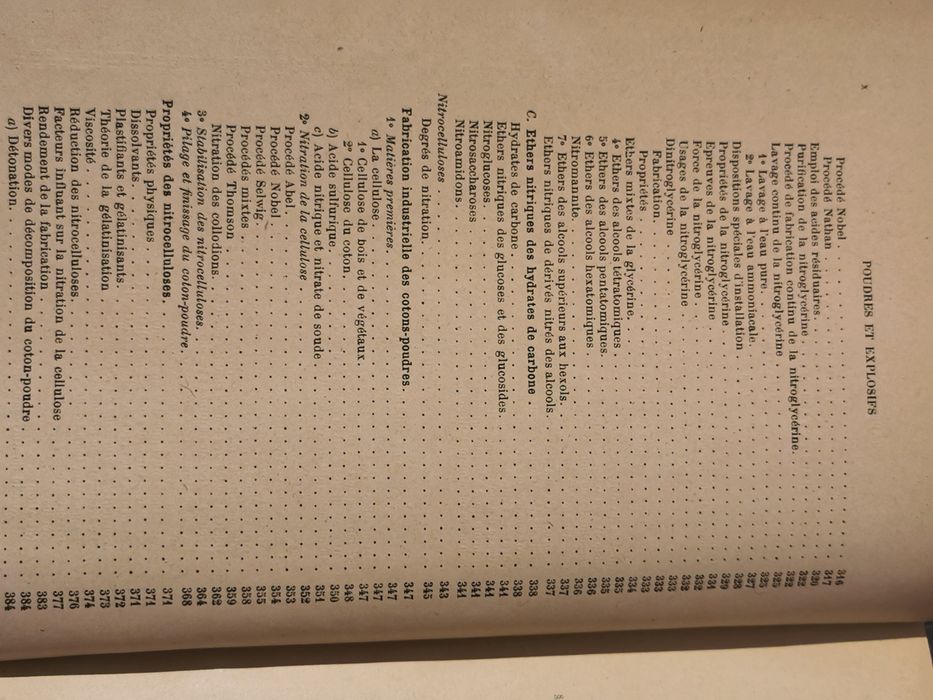 x
POUDRES ET EXPLOSIFS
Procédé Nobel 316
Procédé Nathan 317
Emploi des acides résiduaires 320
Purification de la nitroglycérine 322
Procédé de fabrication continu de la nitroglycérine 322
Lavage continu de la nitroglycérine 325
1º Lavage à l'eau pure 325
2º Lavage à l'eau ammoniacale 327
Dispositions spéciales d'installation 328
Propriétés de la nitroglycérine 329
Epreuves de la nitroglycérine 331
Force de la nitroglycérine 332
Usages de la nitroglycérine 332
Dinitroglycérine 333
Fabrication 333
Propriétés 333
Ethers mixtes de la glycérine 334
4º Ethers des alcools tétratomiques 335
5º Ethers des alcools pentatomiques 335
6º Ethers des alcools hexatomiques 336
Nitromannite 336
7º Ethers des alcools supérieurs aux hexols 337
Ethers nitriques de dérivés nitrés des alcools 337
C. Ethers nitriques des hydrates de carbone 338
Hydrates de carbone 338
Ethers nitriques des glucoses et des glucosides 341
Nitroglucoses 341
Nitrosaccharoses 341
Nitroamidons 341
Nitrocelluloses 343
Degrés de nitration 345
Fabrication industrielle des cotons-poudres 347
1º Matières premières 347
a) La cellulose 347
1º Cellulose de bois et de végétaux 347
2º Cellulose du coton 348
b) Acide sulfurique 350
c) Acide nitrique et nitrate de soude 351
2º Nitration de la cellulose 352
Procédé Abel 353
Procédé Nobel 354
Procédé Selwig 355
Procédés mixtes 358
Procédé Thomson 359
Nitration des collodions 362
3º Stabilisation des nitrocelluloses 364
4º Pilage et finissage du coton-poudre 368
Propriétés des nitrocelluloses 371
Propriétés physiques 371
Dissolvants 371
Plastifiants et gélatinisants 372
Théorie de la gélatinisation 373
Viscosité 374
Réduction des nitrocelluloses 376
Facteurs influant sur la nitration de la cellulose 377
Rendement de la fabrication 383
Divers modes de décomposition du coton-poudre 384
a) Détonation 384